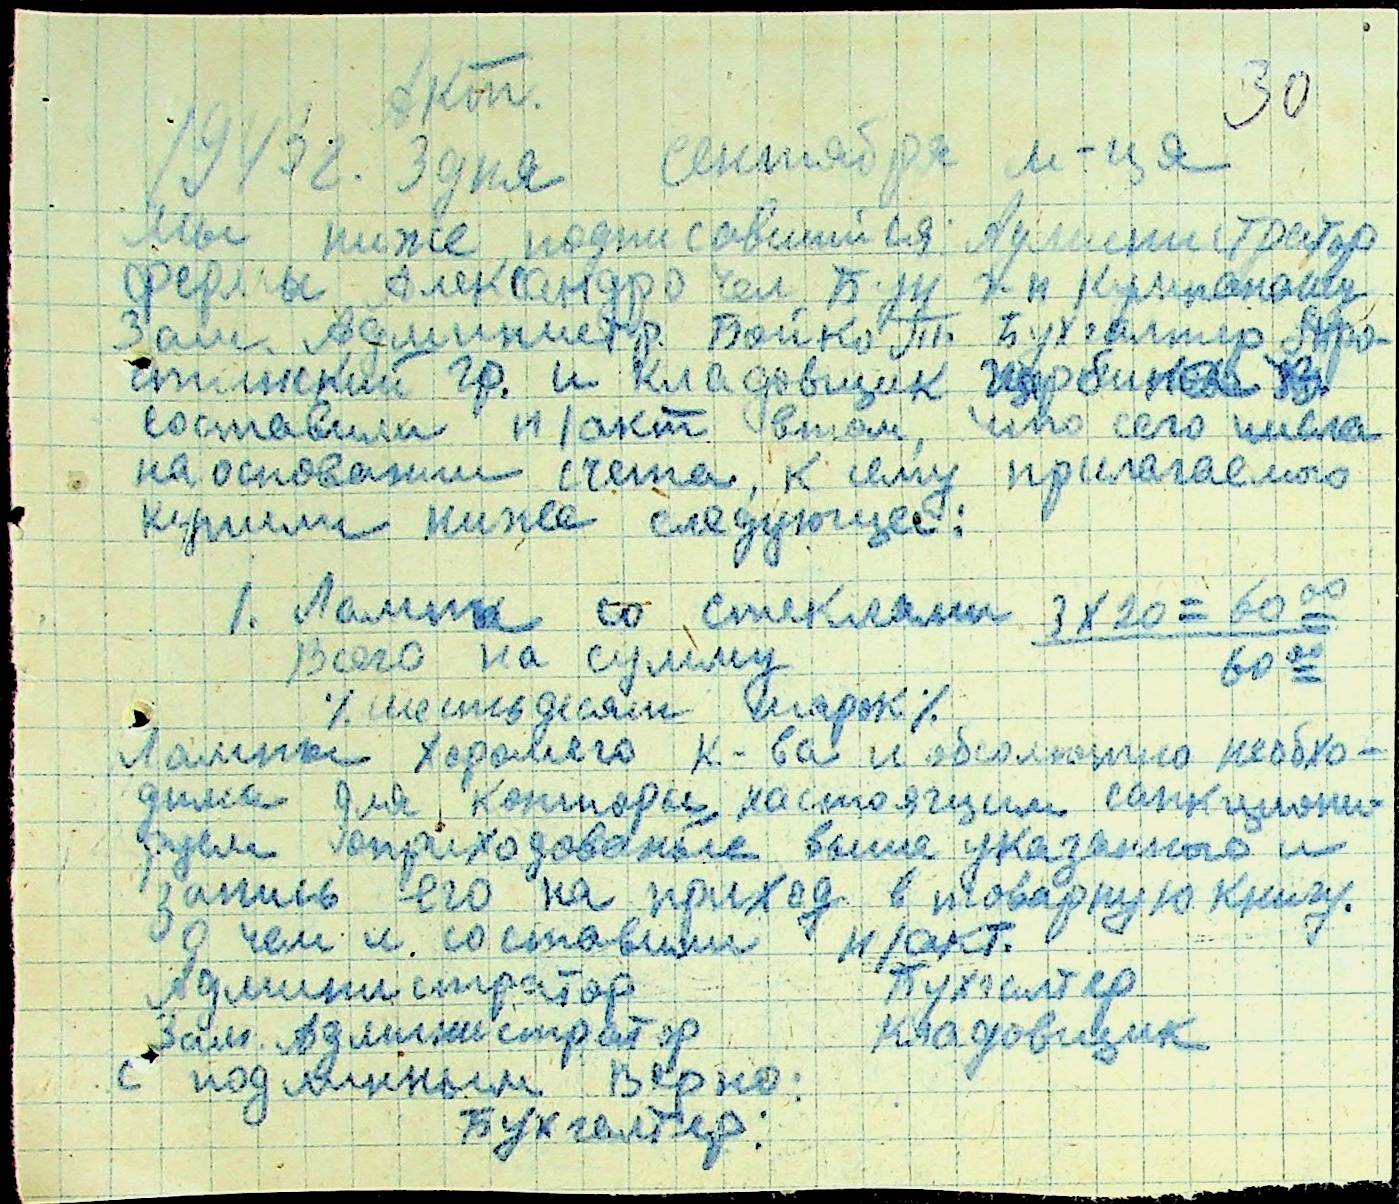 30
Акт.
1943г. 3 дня сентября м-ця
Мы ниже подписавшийся: Администратор
фермы Александро
Зам. Администр. Бойко Т. Бухгалтер
гр. и кладовщик
составили н/акт втом, что сего числа
на основании счета, к сему прилагаемого
купили ниже следующее:
1. Лампы со стеклами 3 х 20 = 60 00
Всего на сумму 60 00
/. шестьдесят марок /.
Лампы хорошего к-ва и абсолютно необхо-
дима для конторы, настоящим санкциони-
руем оприходованые выше указанного и
запись его на приход в товарную книгу.
О чем и составили н/акт.
Администратор Бухгалтер
Зам. Администратор Кладовщик
С подлинным Верно:
Бухгалтер: